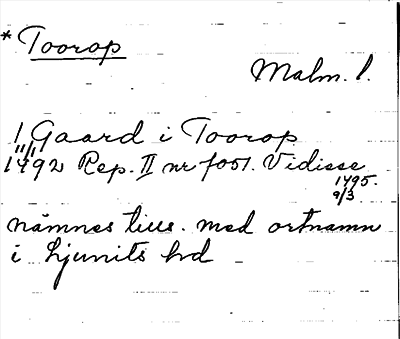 * Toorop
Malm. l.
1 Gaard i Toorop
11/1
1492 Rep. II nr 7051. Vidisse
1495.
9/3
nämnes tills. med ortnamn
i Ljunits hd